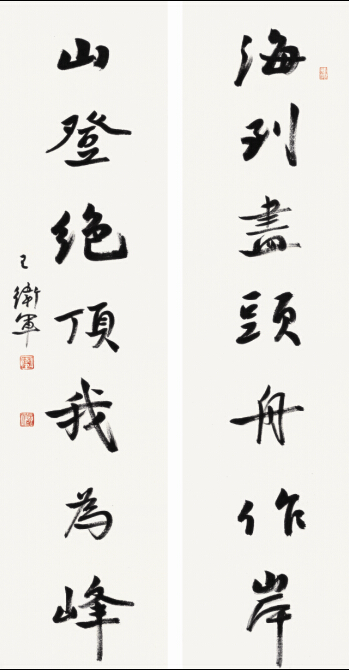 海到盡頭舟作岸
山登絶頂我為峰
王衛軍